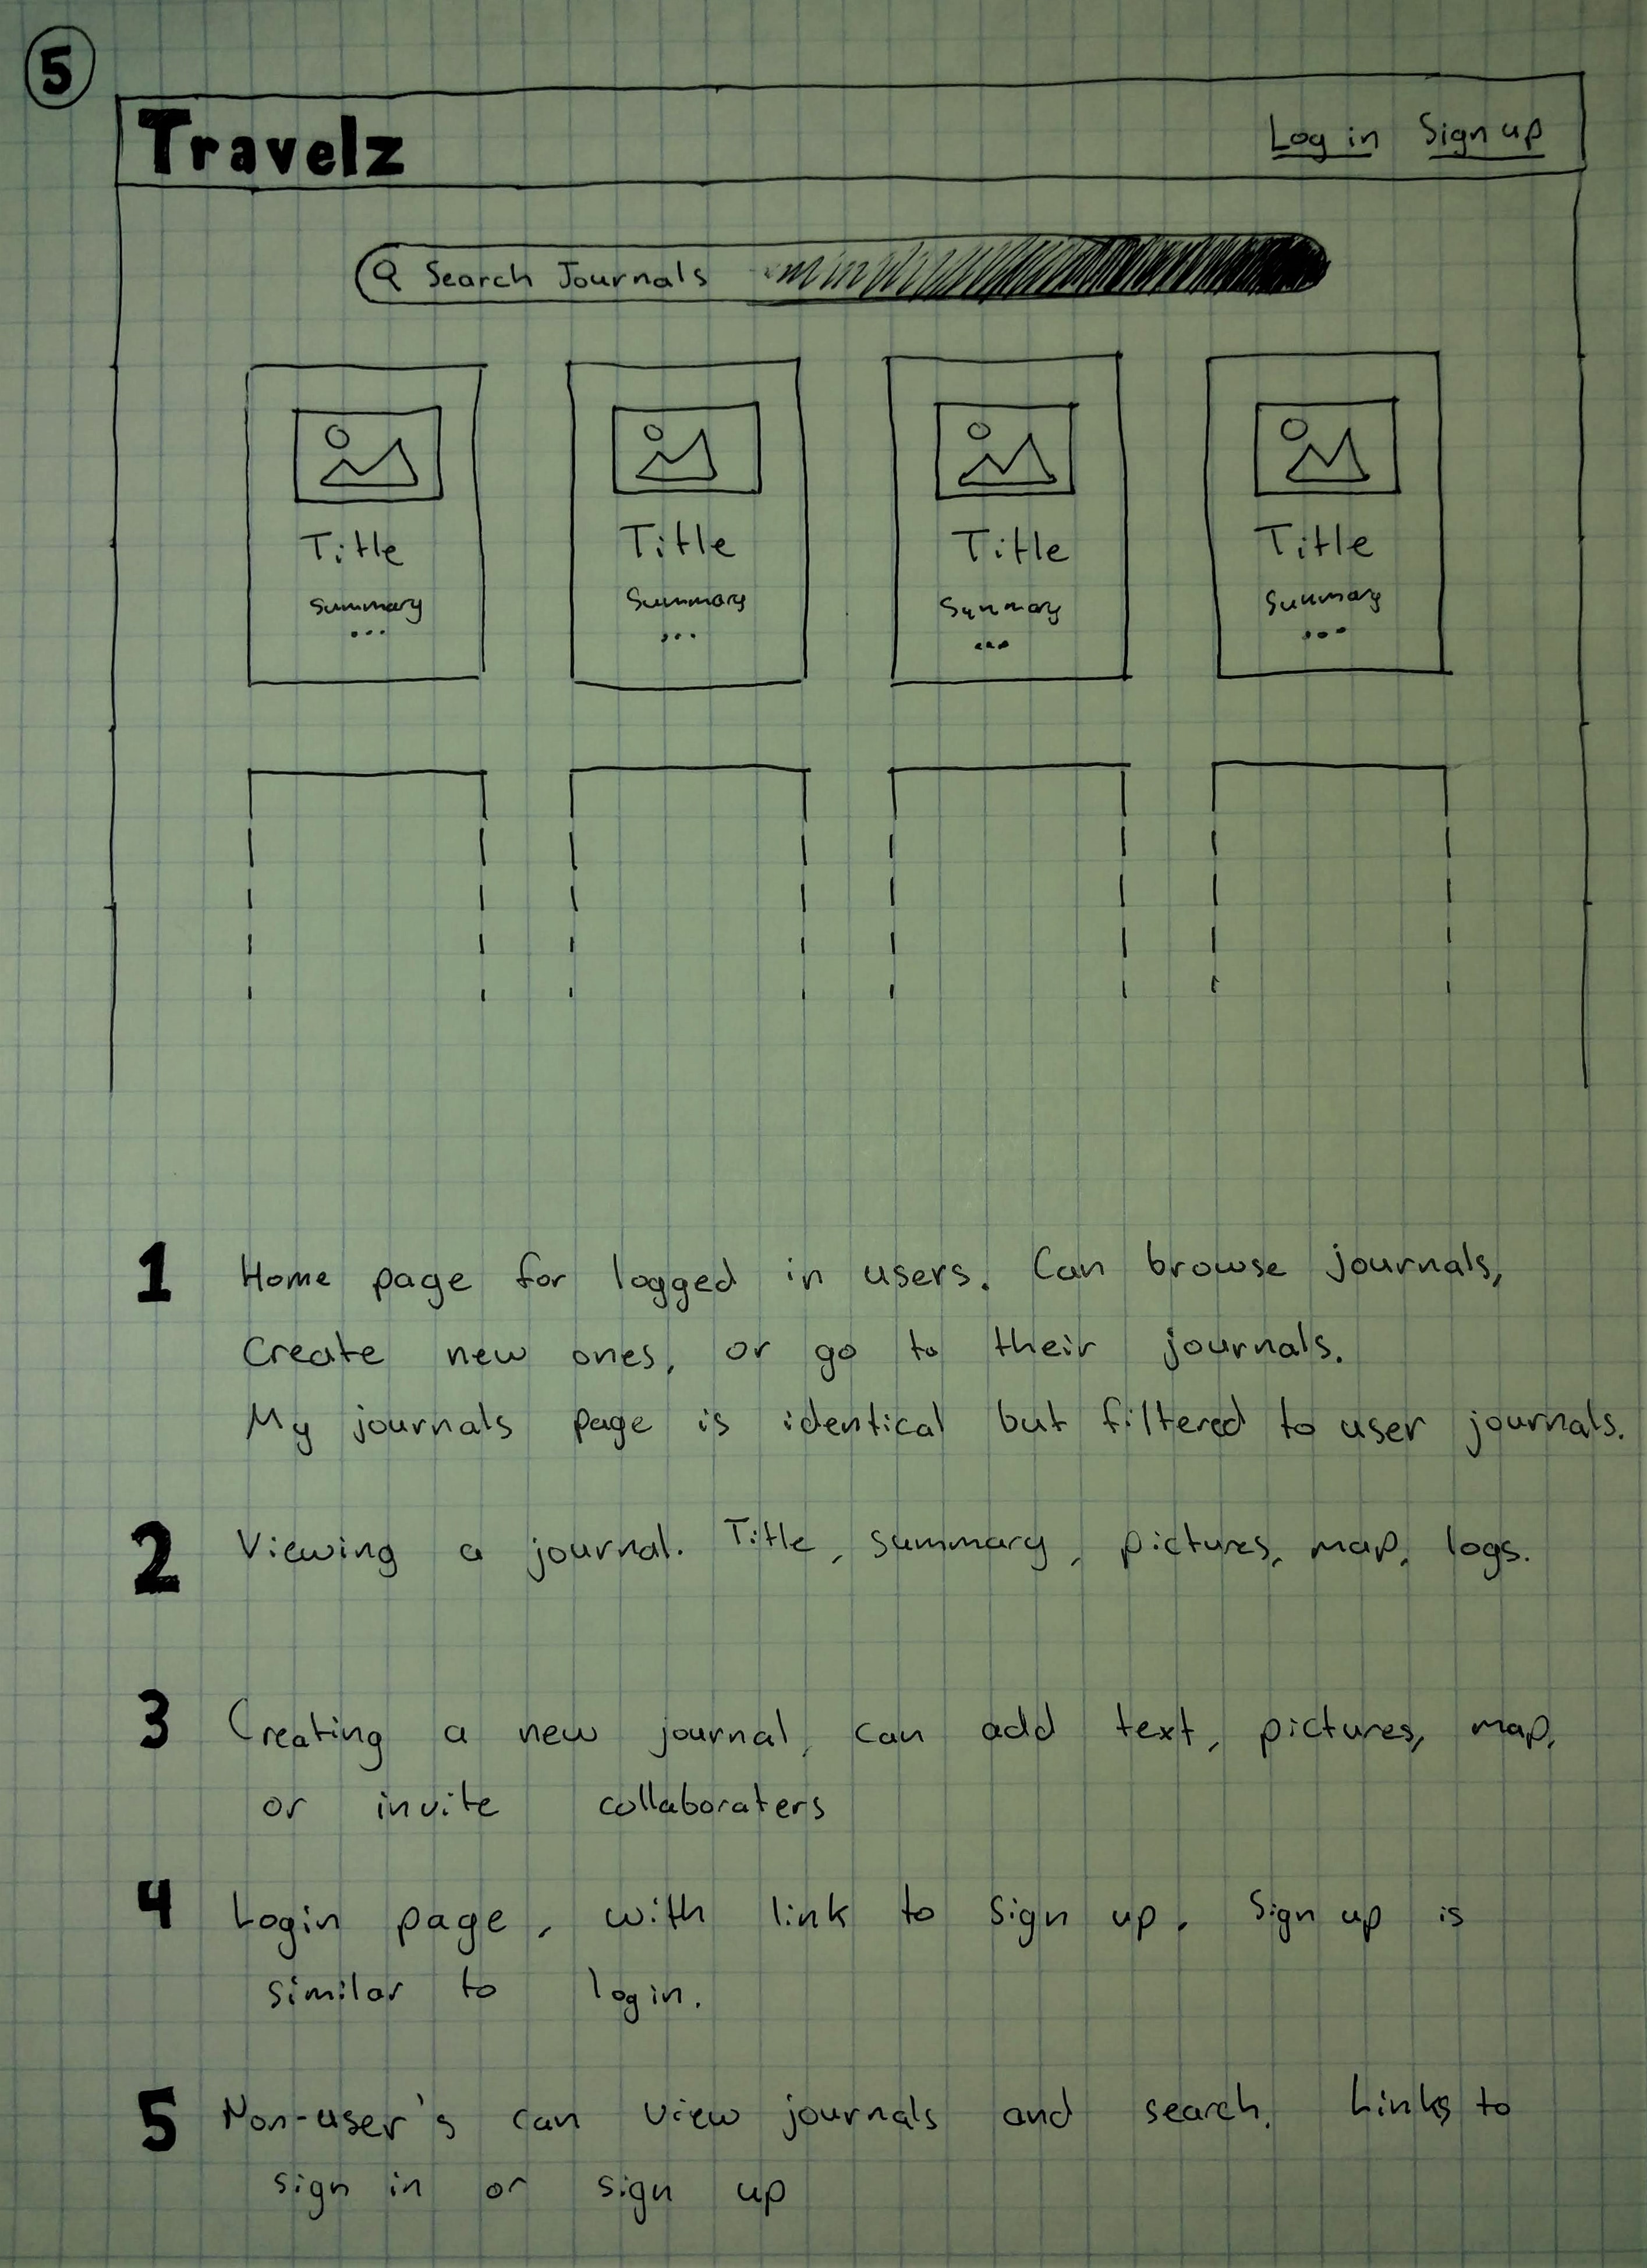 5
Travelz Log in Sign up
Search Journals
Title Title Title Title
Summary Summary Summary Summary
... ... ... ...
1 Home page for logged in users. Can browse journals,
Create new ones, or go to their journals.
My journals page is identical but filtered to user journals.
2 Viewing a journal. Title, summary, pictures, map, logs.
3 Creating a new journal, can add text, pictures, map,
or invite collaboraters
4 Login page, with link to sign up. Sign up is
similar to login.
5 Non-user's can view journals and search. Links to
sign in or sign up